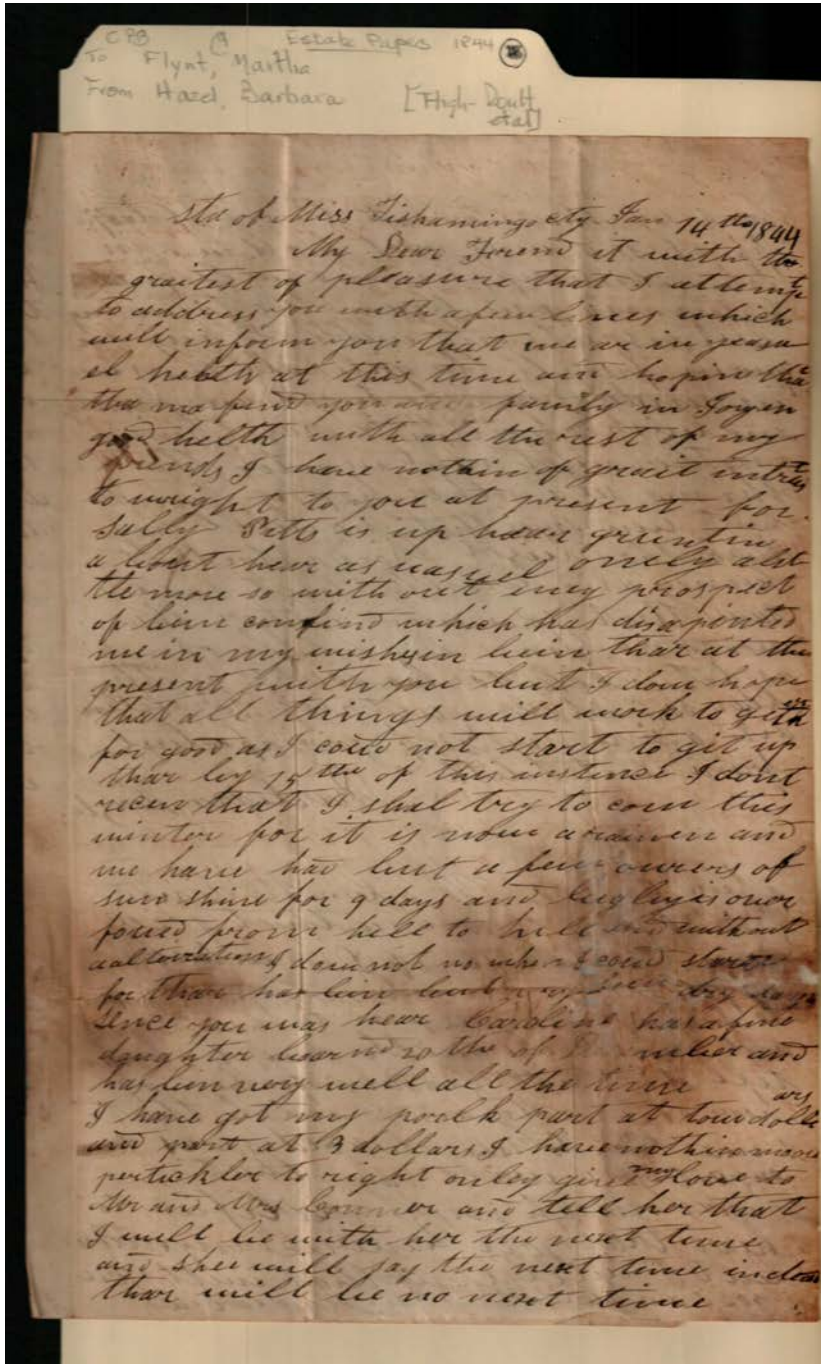 CPB Estate Papers 1844
To Flynt, Martha
From Hazel, Barbara [High-Doutt etal]
sta of Miss Tishamingo cty Jan 14 th 1844
My Dear Friend it with the
graitest of pleasure that I attempt
to address you with a few lines which
will inform you that we ar in
helth at this time and hopin
tha ma find you and family in Joyen
good helth with all the rest of my
friends I have nothin of grait
to wright to you at present for
Sally Pitts is up hear gruntin
a bout hear as uasuel onely alit
tle more so with out eny prospect
of bein confind which has disapinted
me in my wishe in bein thar at the
present with you but I dow hope
that all things will work to
for good as I coud not start to git up
thar by the of this instence I dont
recen that I shal try to com this
winter for it is now a rainen and
we have had but a few ouvers of
sun shine for 9 days and is over
from hill to hill and without
I dow not no when I coud start
for thar has bin but dry days
sence you was hear Caroline has a fine
daughter bearn the of and
has bin very well all the time
I have got my porlk part at tow dollars
and part at 3 dollars I have nothin more
pertickler to right onley give my love to
Mr and Mrs and tell her that
I will be with her the next time
and shee will say the next time
thar will be no next time